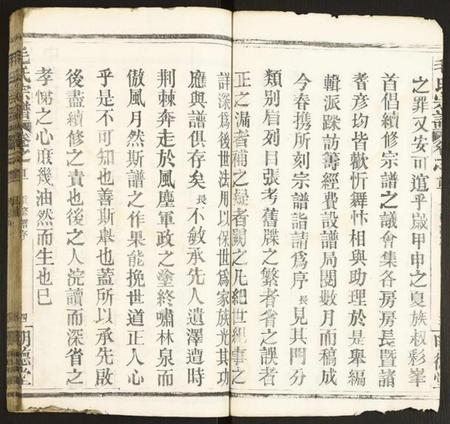 之罪又安可逭乎歲甲申之夏族叔彩峯
首倡續修宗譜之議會集各房房長暨諸
耆彦均皆歡忻舞忭相與助理於是舉編
輯派踩訪籌經費設譜局閱數月而稿成
今春携所刻宗譜詣請爲序長見其門分
類別眉列目張考舊牒之繁者省之誤者
正之漏者補之疑者闕之凡紀世紀事之
詳深爲後世法用以保世爲家族光其功
應與譜俱存矣長不敏承先人遺澤遭時
荆棘奔走於風塵軍政之塗終嘯林泉而
傲風月然斯譜之作果能挽世道正人心
乎是不可知也善斯舉也蓋所以承先啟
後盡續修之責也後之人浣讀而深省之
孝悌之心庶幾油然而生也已
毛氏宗譜
毛氏宗譜 卷之首
四